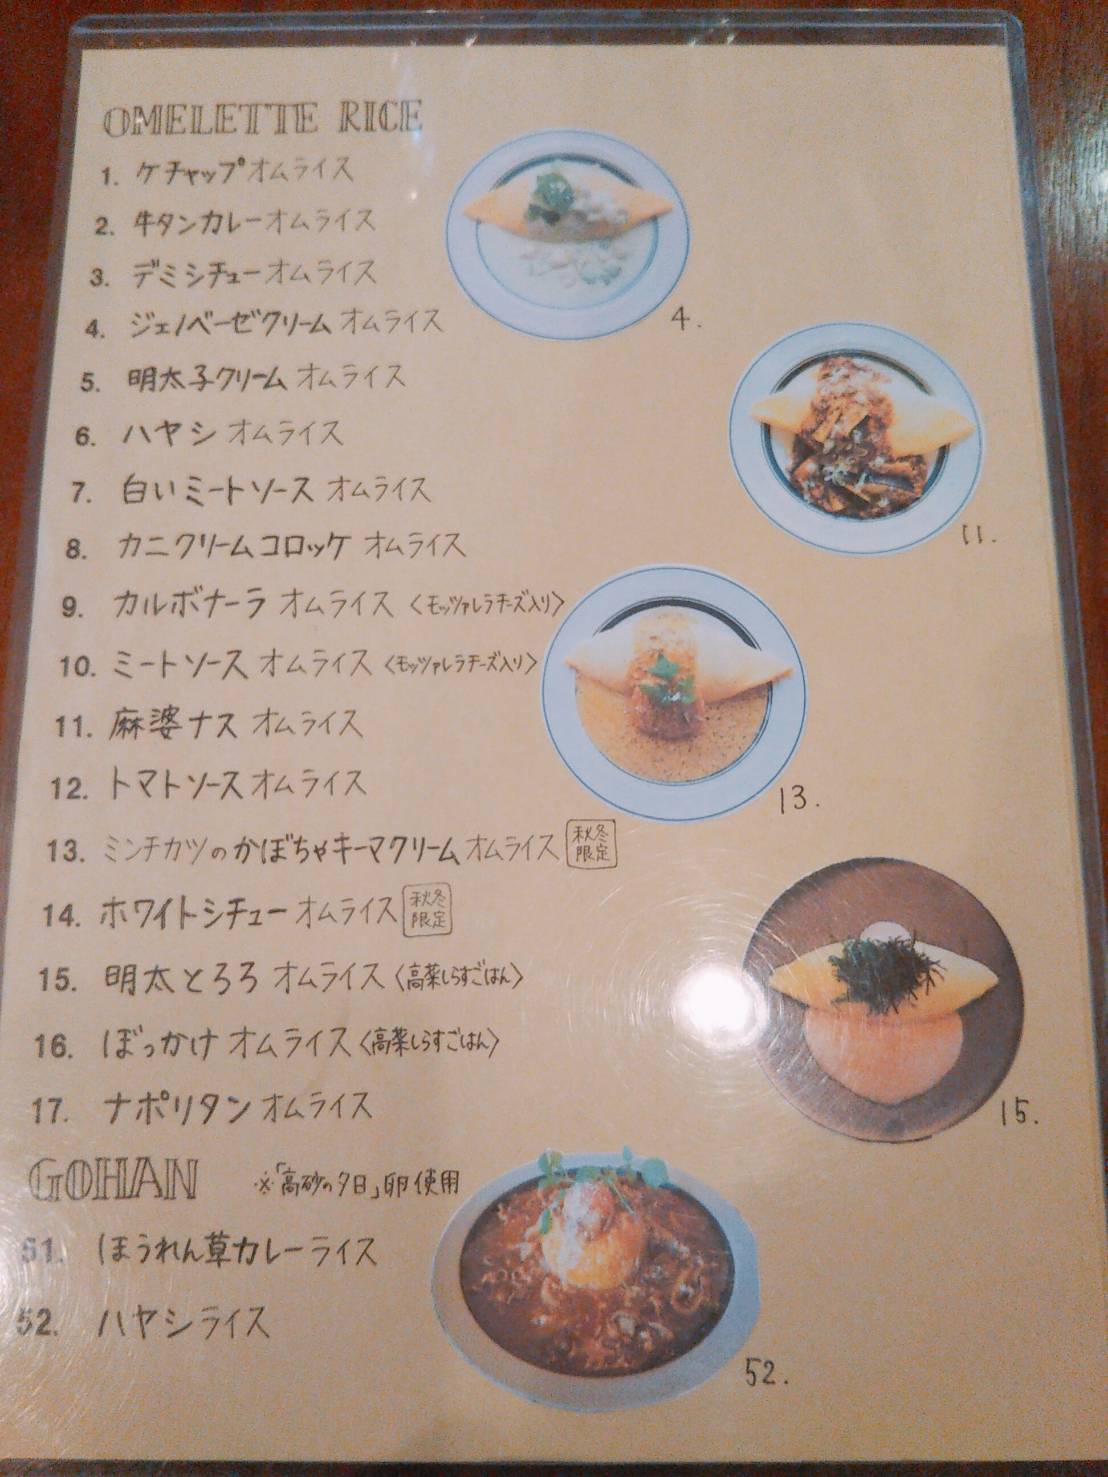 OMELETTE RICE
1. ケチャップオムライス
2. 牛タンカレーオムライス
3. デミシチューオムライス
4. ジェノベーゼクリームオムライス
4.
5. 明太子クリームオムライス
6. ハヤシオムライス
7. 白いミートソースオムライス
11.
8. カニクリームコロッケオムライス
9. カルボナーラオムライス〈モッツァレラチーズ入り〉
10. ミートソースオムライス〈モッツァレラチーズ入り〉
11. 麻婆ナスオムライス
12. トマトソースオムライス
13.
13. ミンチカツのかぼちゃキーマクリームオムライス 秋冬限定
14. ホワイトシチューオムライス 秋冬限定
15. 明太とろろオムライス〈高菜しらすごはん〉
16. ぼっかけオムライス〈高菜しらすごはん〉
17. ナポリタンオムライス
15.
GOHAN ※「高砂の夕日」卵使用
51. ほうれん草カレーライス
52. ハヤシライス
52.